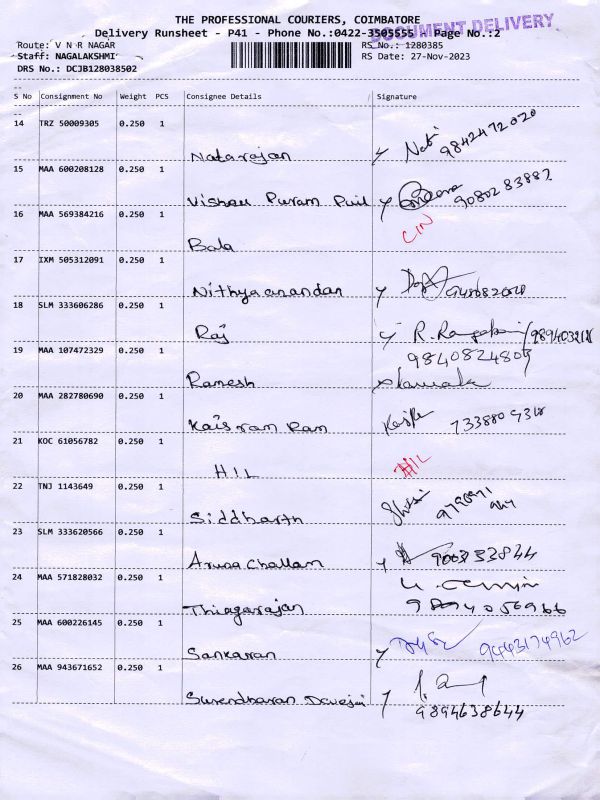 THE PROFESSIONAL COURIERS, COIMBATORE
DOCUMENT DELIVERY
Delivery Runsheet - P41 - Phone No.:0422-3505555 - Page No.:2
Route: V N R NAGAR
RS No.: 1280385
Staff: NAGALAKSHMI
RS Date: 27-Nov-2023
DRS No.: DCJB128038502
S No Consignment No Weight PCS Consignee Details Signature
14 TRZ 50009305 0.250 1
Natarajan 9842472020
15 MAA 600208128 0.250 1
Vishnu Puram Puil 9080283887
16 MAA 569384216 0.250 1
Bala CIN
17 IXM 505312091 0.250 1
Nithyaanandan
18 SLM 333606286 0.250 1
Raj R.
19 MAA 107472329 0.250 1
Ramesh
20 MAA 282780690 0.250 1
Kaisram Ram
21 KOC 61056782 0.250 1
HIL HIL
22 TNJ 1143649 0.250 1
Siddharth
23 SLM 333620566 0.250 1
Aruna Challam
24 MAA 571828032 0.250 1
Thiagarajan
25 MAA 600226145 0.250 1
Sankaran 9443174962
26 MAA 943671652 0.250 1
Surendharan 9894638644